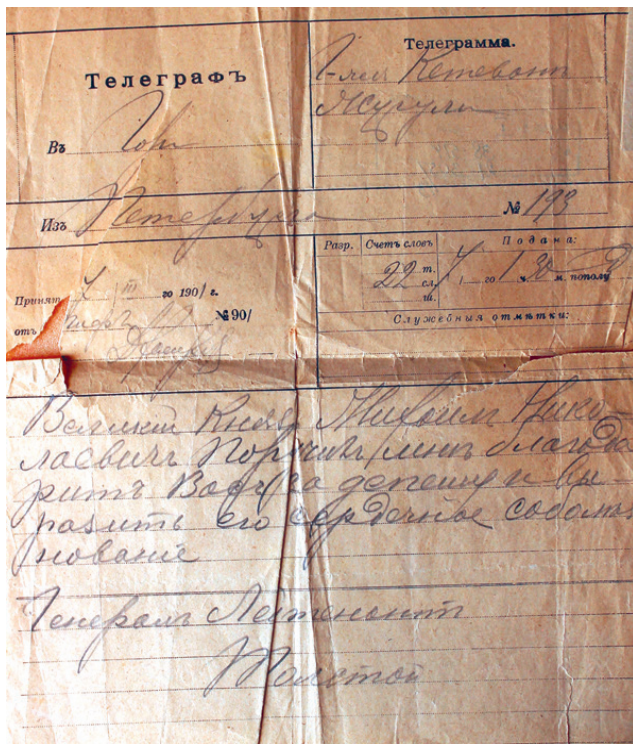 Телеграфъ
Въ Гори
Изъ Петербурга
Принят 7/III го 1901 г.
отъ №90/
Телеграмма.
Г-жа Кетевант
Журули
№ 193
Разр. Счетъ словъ Подана:
22 т. 7 го 1 ч 30 м. пополу
сл.
ш.
Служебныя отмѣтки:
Великій Князь Михаилъ Нико
лаевичъ поручилъ мнѣ благода
рить Васъ за депешу и вы
разить его сердечное соболѣз
нованіе
Генералъ Лейтенантъ
Толстой